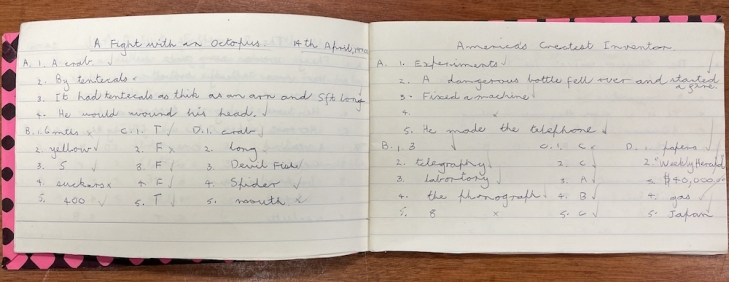 A Fight with an Octopus. 14th April,
A. 1. A crab.
2. By tentecals
3. It had tentecals as thik as an arm and 5ft long
4. He would wound his head.
B. 1. C. 1. T D. 1. crab
2. yellow 2. F 2. long
3. 5 3. F 3. Devil Fish
4. suckers 4. F 4. Spider
5. 400 5. T 5. mouth
America's Greatest Inventor
A. 1. Experiments
2. A dangerous bottle fell over and started
a fire.
3. Fixed a machine
4.
5. He made the telephone
B. 1. 3 C. 1. C D. 1. papers
2. telegraphy 2. C 2. "Weekly Herald
3. labortory 3. A 3. $40,000
4. the phonograph 4. B 4. gas
5. 8 5. C 5. Japan